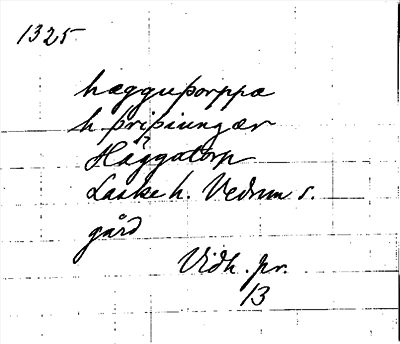 1325
hægguþorppa
h þriþiungær
Häggatorp
Laske h. Vedum s.
gård
Vidh. pr.
13